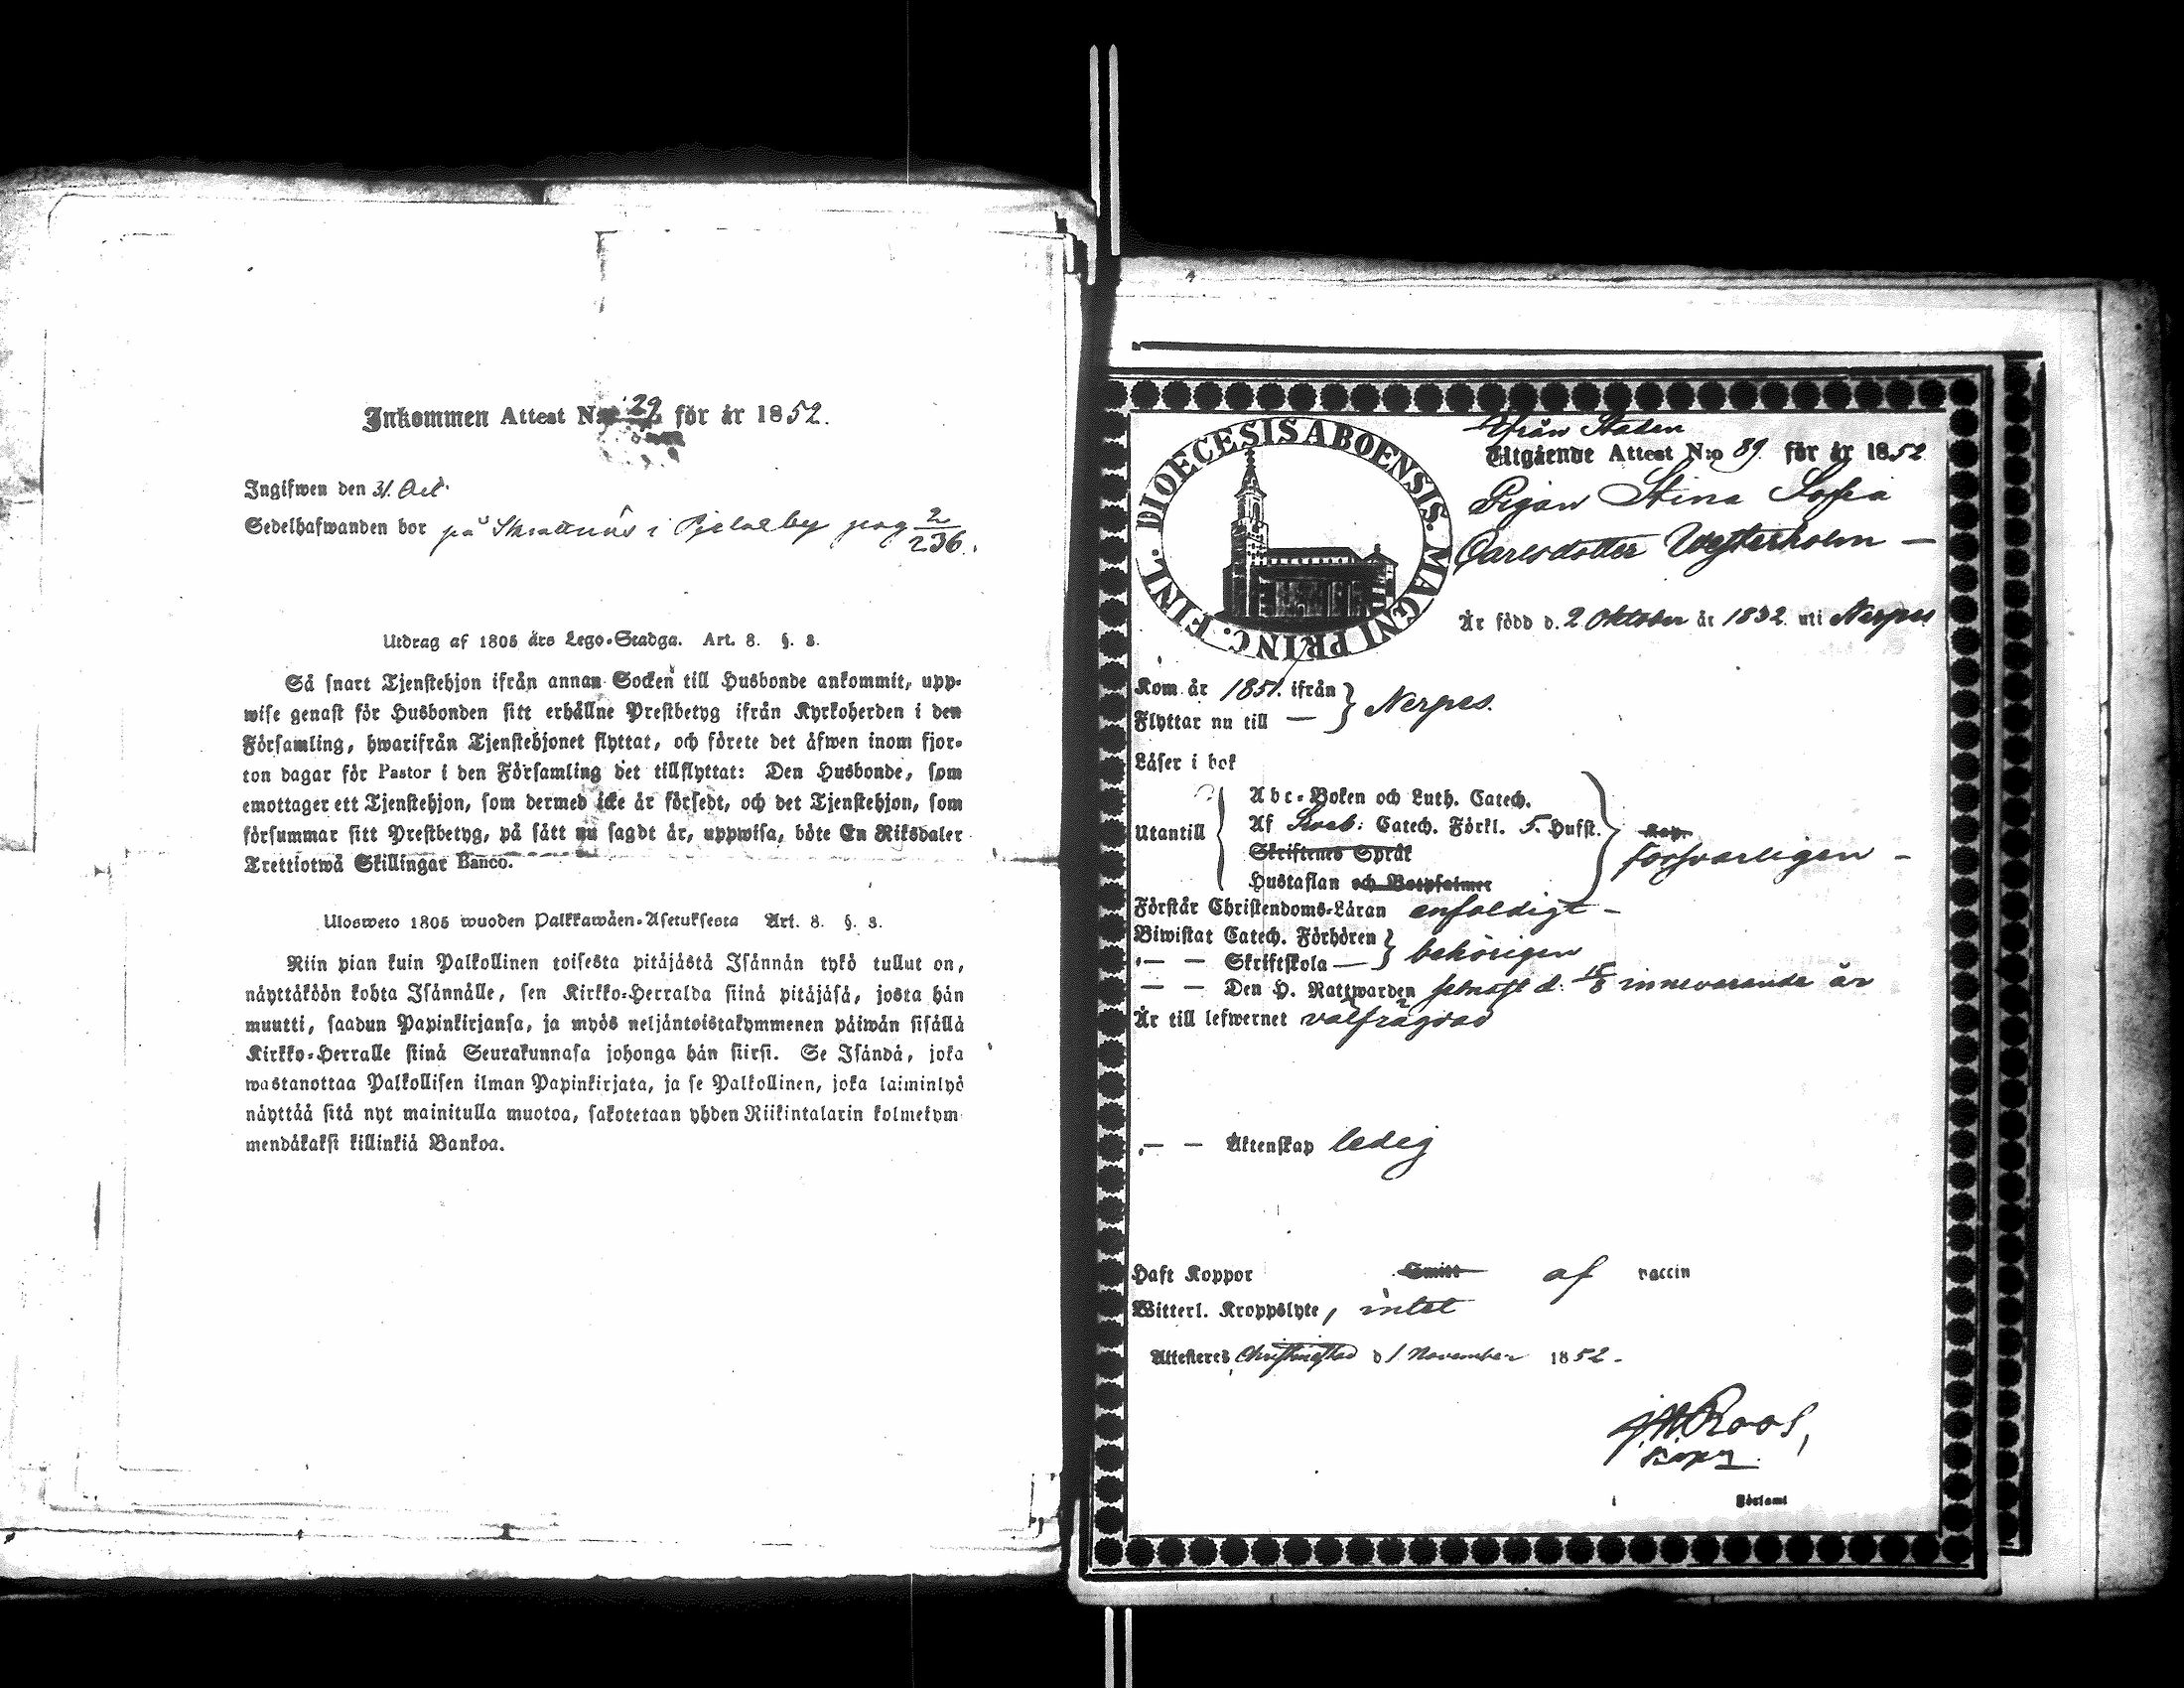 Inkommen Attest N:o 29 för år 1852.
Ingifwen den 31. Oct.
Sedelhafwanden bor på Skrattnäs i Pjelaxby pag 2/236.
Utdrag af 1805 års Lego-Stadga. Art. 8. §. 3.
Så snart Tjenstehjon ifrån annan Socken till Husbonde ankommit, upp-
wise genast för Husbonden sitt erhållne Prestbetyg ifrån Kyrkoherden i den
Församling, hwarifrån Tjenstehjonet flyttat, och förete det äfwen inom fjor-
ton dagar för Pastor i den Församling det tillflyttat: Den Husbonde, som
emottager ett Tjenstehjon, som dermed icke är försedt, och det Tjenstehjon, som
försummar sitt Prestbetyg, på sätt nu sagdt är, uppwisa, böte En Riksdaler
Trettiotwå Skillingar Banco.
Ulosweto 1805 wuoden Palkkawäen-Asetuksesta Art. 8. §. 3.
Niin pian kuin Palkollinen toisesta pitäjästä Isännän tykö tullut on,
näyttäköön kohta Isännälle, sen Kirkko-Herralda siinä pitäjäsä, josta hän
muutti, saadun Papinkirjansa, ja myös neljäntoistakymmenen päiwän sisällä
Kirkko-Herralle siinä Seurakunnasa johonga hän siirsi. Se Isändä, joka
wastanottaa Palkollisen ilman Papinkirjata, ja se Palkollinen, joka laiminlyö
näyttää sitä nyt mainitulla muotoa, sakotetaan yhden Riikintalarin kolmekym-
mendäkaksi killinkiä Bankoa.
DIOECESIS ABOENSIS. MAGNI PRINC. FINL.
Ifrån Staden
Utgående Attest N:o 89 för år 1852
Pigan Stina Sofia
Carlsdotter Westerholm —
Är född d. 2 Oktober år 1832 uti Nerpes
Kom år 1851. ifrån } Nerpes.
Flyttar nu till —
Läser i bok
Utantill
Abc-Boken och Luth. Catech.
Af Sveb: Catech. Förkl. 5. Hufst.
Skriftenes Språk
Hustaflan och Botpsalmer
försvarligen —
Förstår Christendoms-Läran enfaldigt —
Biwistat Catech. Förhören } behörigen
— — Skriftskola —
— — Den H. Nattwarden senast d. innevarande år
Är till lefwernet välfrägdad
— — Äktenskap ledig
Haft Koppor Smitt af vaccin
Witterl. Kroppslyte, intet
Attesteras Christinestad d 1 November 1852.
J. W. Roos,
i Församl